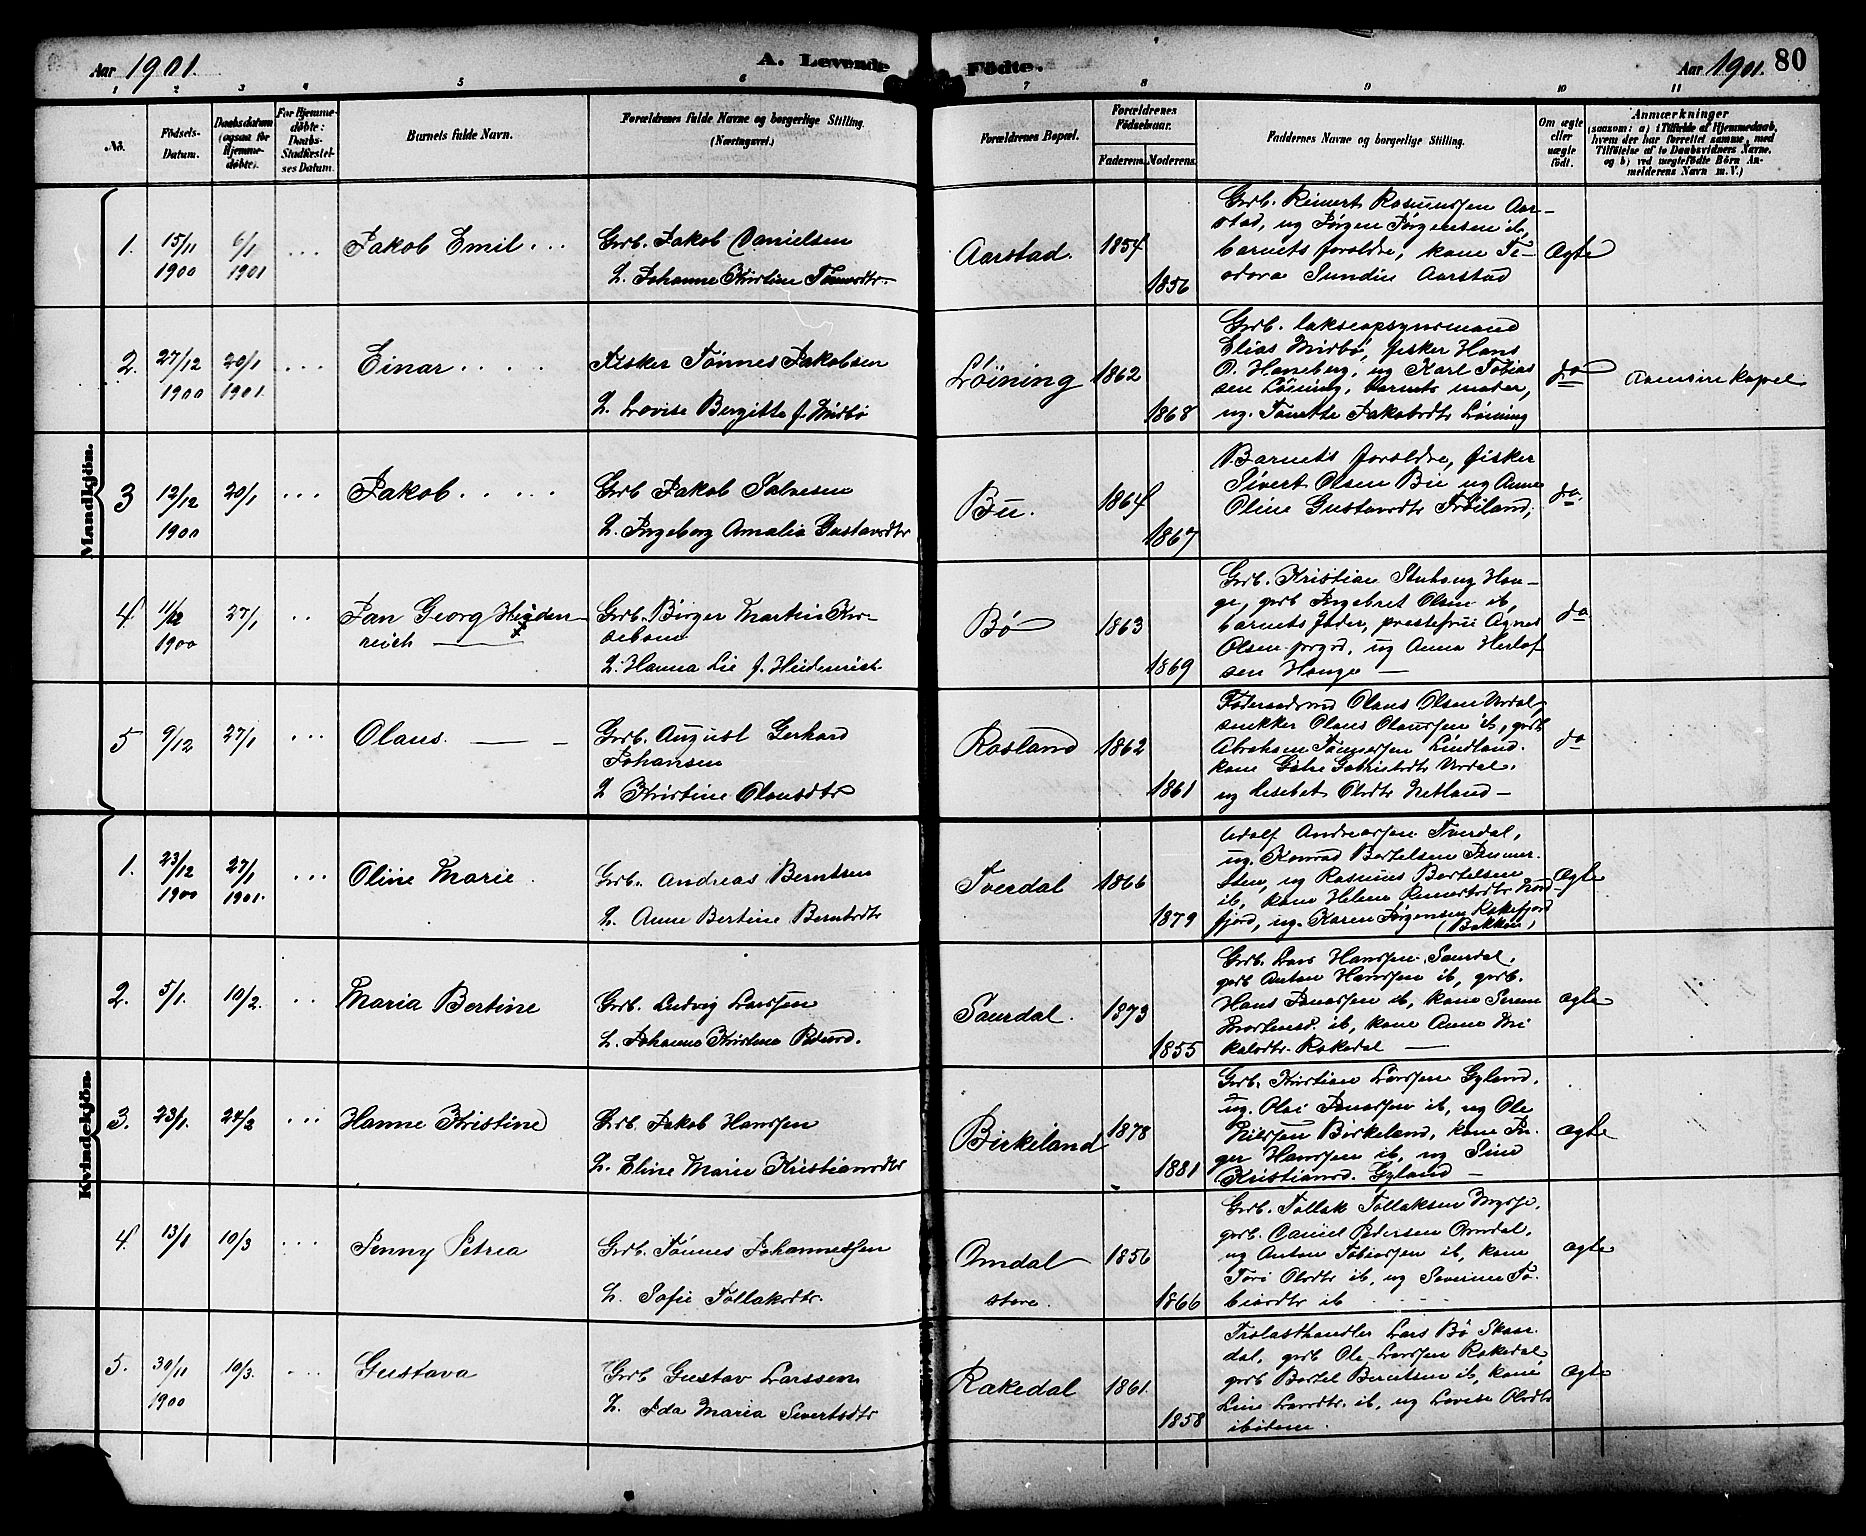 Aar 1901. A. Levende Födte. Aar 1901. 80
1 2 3 4 5 6 7 8 9 10 11
No. Födsels-Datum. Daabsdatum (ogsaa for Hjemmedøbte). For Hjemmedøbte: Daabs-Stadfæstelses Datum. Barnets fulde Navn. Forældrenes fulde Navne og borgerlige Stilling. (Næringsvei.) Forældrenes Bopæl. Forældrenes Fødselsaar. Faderens. Moderens. Faddernes Navne og borgerlige Stilling. Om ægte eller uægte født. Anmærkninger (saasom: a) i Tilfælde af Hjemmedaab, hvem der har forrettet samme, med Tilføielse af to Daabsvidners Navne, og b) ved uægtefødte Børn Anmelderens Navn m. V.)
Mandkjön.
1. 15/11 1900 6/1 1901 ... Jakob Emil ...
Grb. Jakob Danielsen
H. Johanne Kristine Tønnesdtr.
Aarstad. 1854 1856
Grb. Reinert Rasmussen Aar-
stad, ug Jørgen Jørgensen ib,
barnets foreldre, kone Te-
odora Sundin Aarstad
Ægte
2. 27/12 1900 20/1 1901. ... Einar ....
Fisker Tønnes Jakobsen
H. Lovise Bergitte f. Midbø
Løining 1862 1868
Grb. lakseopsynsmand
Elias Midbø, fisker Hans
O. Haneberg, ug Karl Tobias
sen Løining, barnets moder,
ug. Tonette Jakobsdtr Løining
do
Aamsire kapel
3 12/12 1900 20/1 ... Jakob .....
Grb Jakob Salvesen
H. Ingeborg Amalia Gustavsdtr
Bu. 1864 1867
Barnets foreldre, fisker
Sivert Olsen Bu ug Anne
Oline Gustavsdtr Frøiland,
do.
4. 11/12 1900 27/1 .. Jan Georg Heiden
reich
Grb. Birger Martin
H. Hanna Lie f. Heidenreich
Bø 1863 1869
Grb. Kristian Stuhaug Hau-
ge, grb Ingebret Olsen ib,
barnets fader, prestefrue Agnes
Olsen prgrd, ug Anna Herlof
sen Hauge —
do
5 9/12 27/1 ... Olaus. — —
Grb. August Gerhard
Johansen
H Kristine Olausdtr
Rosland 1862 1861
Føderaadsmd Olaus Olsen Urdal,
snekker Olaus Olaussen ib, grb
Abraham Tønnessen Lindland.
kone Gabrielsdtr Urdal.
ug Lisebet Olsdtr Netland —
do
Kvindekjön.
1. 23/12 1900 27/1 1901. ... Oline Marie.
Grb. Andreas Berntsen
H. Anne Bertine Berntsdtr
Tverdal 1866 1879
Adolf Andreassen Tverdal,
ug. Konrad Bertelsen Jammer-
sten, ug Rasmus Bertelsen
ib, kone Helene Reinertsdtr Nord
fjord, ug. Karen Jørgensen Rekefjord
(Bakkan)
Ægte
2. 5/1. 10/2. .. Maria Bertine
Grb. Ludvig Larssen
H. Johanne Kristina Pedersd.
Saurdal. 1873 1855
Grb. Lars Hanssen Saurdal,
grb Anton Hanssen ib, grb.
Hans Jonassen ib, kone Seren
ib, kone Anne Mi
kalsdtr. Rakedal —
ægte
3. 23/1. 24/2 ... Hanne Kristine
Grb. Jakob Hanssen
H. Eline Marie Kristiansdtr
Birkeland 1878 1881
Grb. Kristian Larssen Gyland.
ug. Olai Jonassen ib, ug Ole
Nilssen Birkeland, kone In-
ger Hanssen ib, ug Sine
Kristiansd. Gyland —
ægte
4. 13/1 10/3 ... Jenny Petrea
Grb. Tønnes Johannessen
H. Sofie Tollaksdtr.
Omdal
store. 1856 1866
Grb. Tollak Tollaksen Mysse,
grb. Daniel Pedersen Omdal,
ug Anton Tobiassen ib, kone
Tori Olsdtr ib, ug Severine To-
biasdtr ib
ægte
5. 30/11 1900 10/3. ... Gustava
Grb Gustav Larssen
H. Ida Maria Sivertsdtr
Rakedal 1861. 1858
Trelasthandler Lars Bø Skaar-
dal, grb Ole Larssen Rakedal
grb Bertel Berntsen ib, kone
Line Larsdtr. ib, ug Lovise Olsdtr
ibidem.
ægte